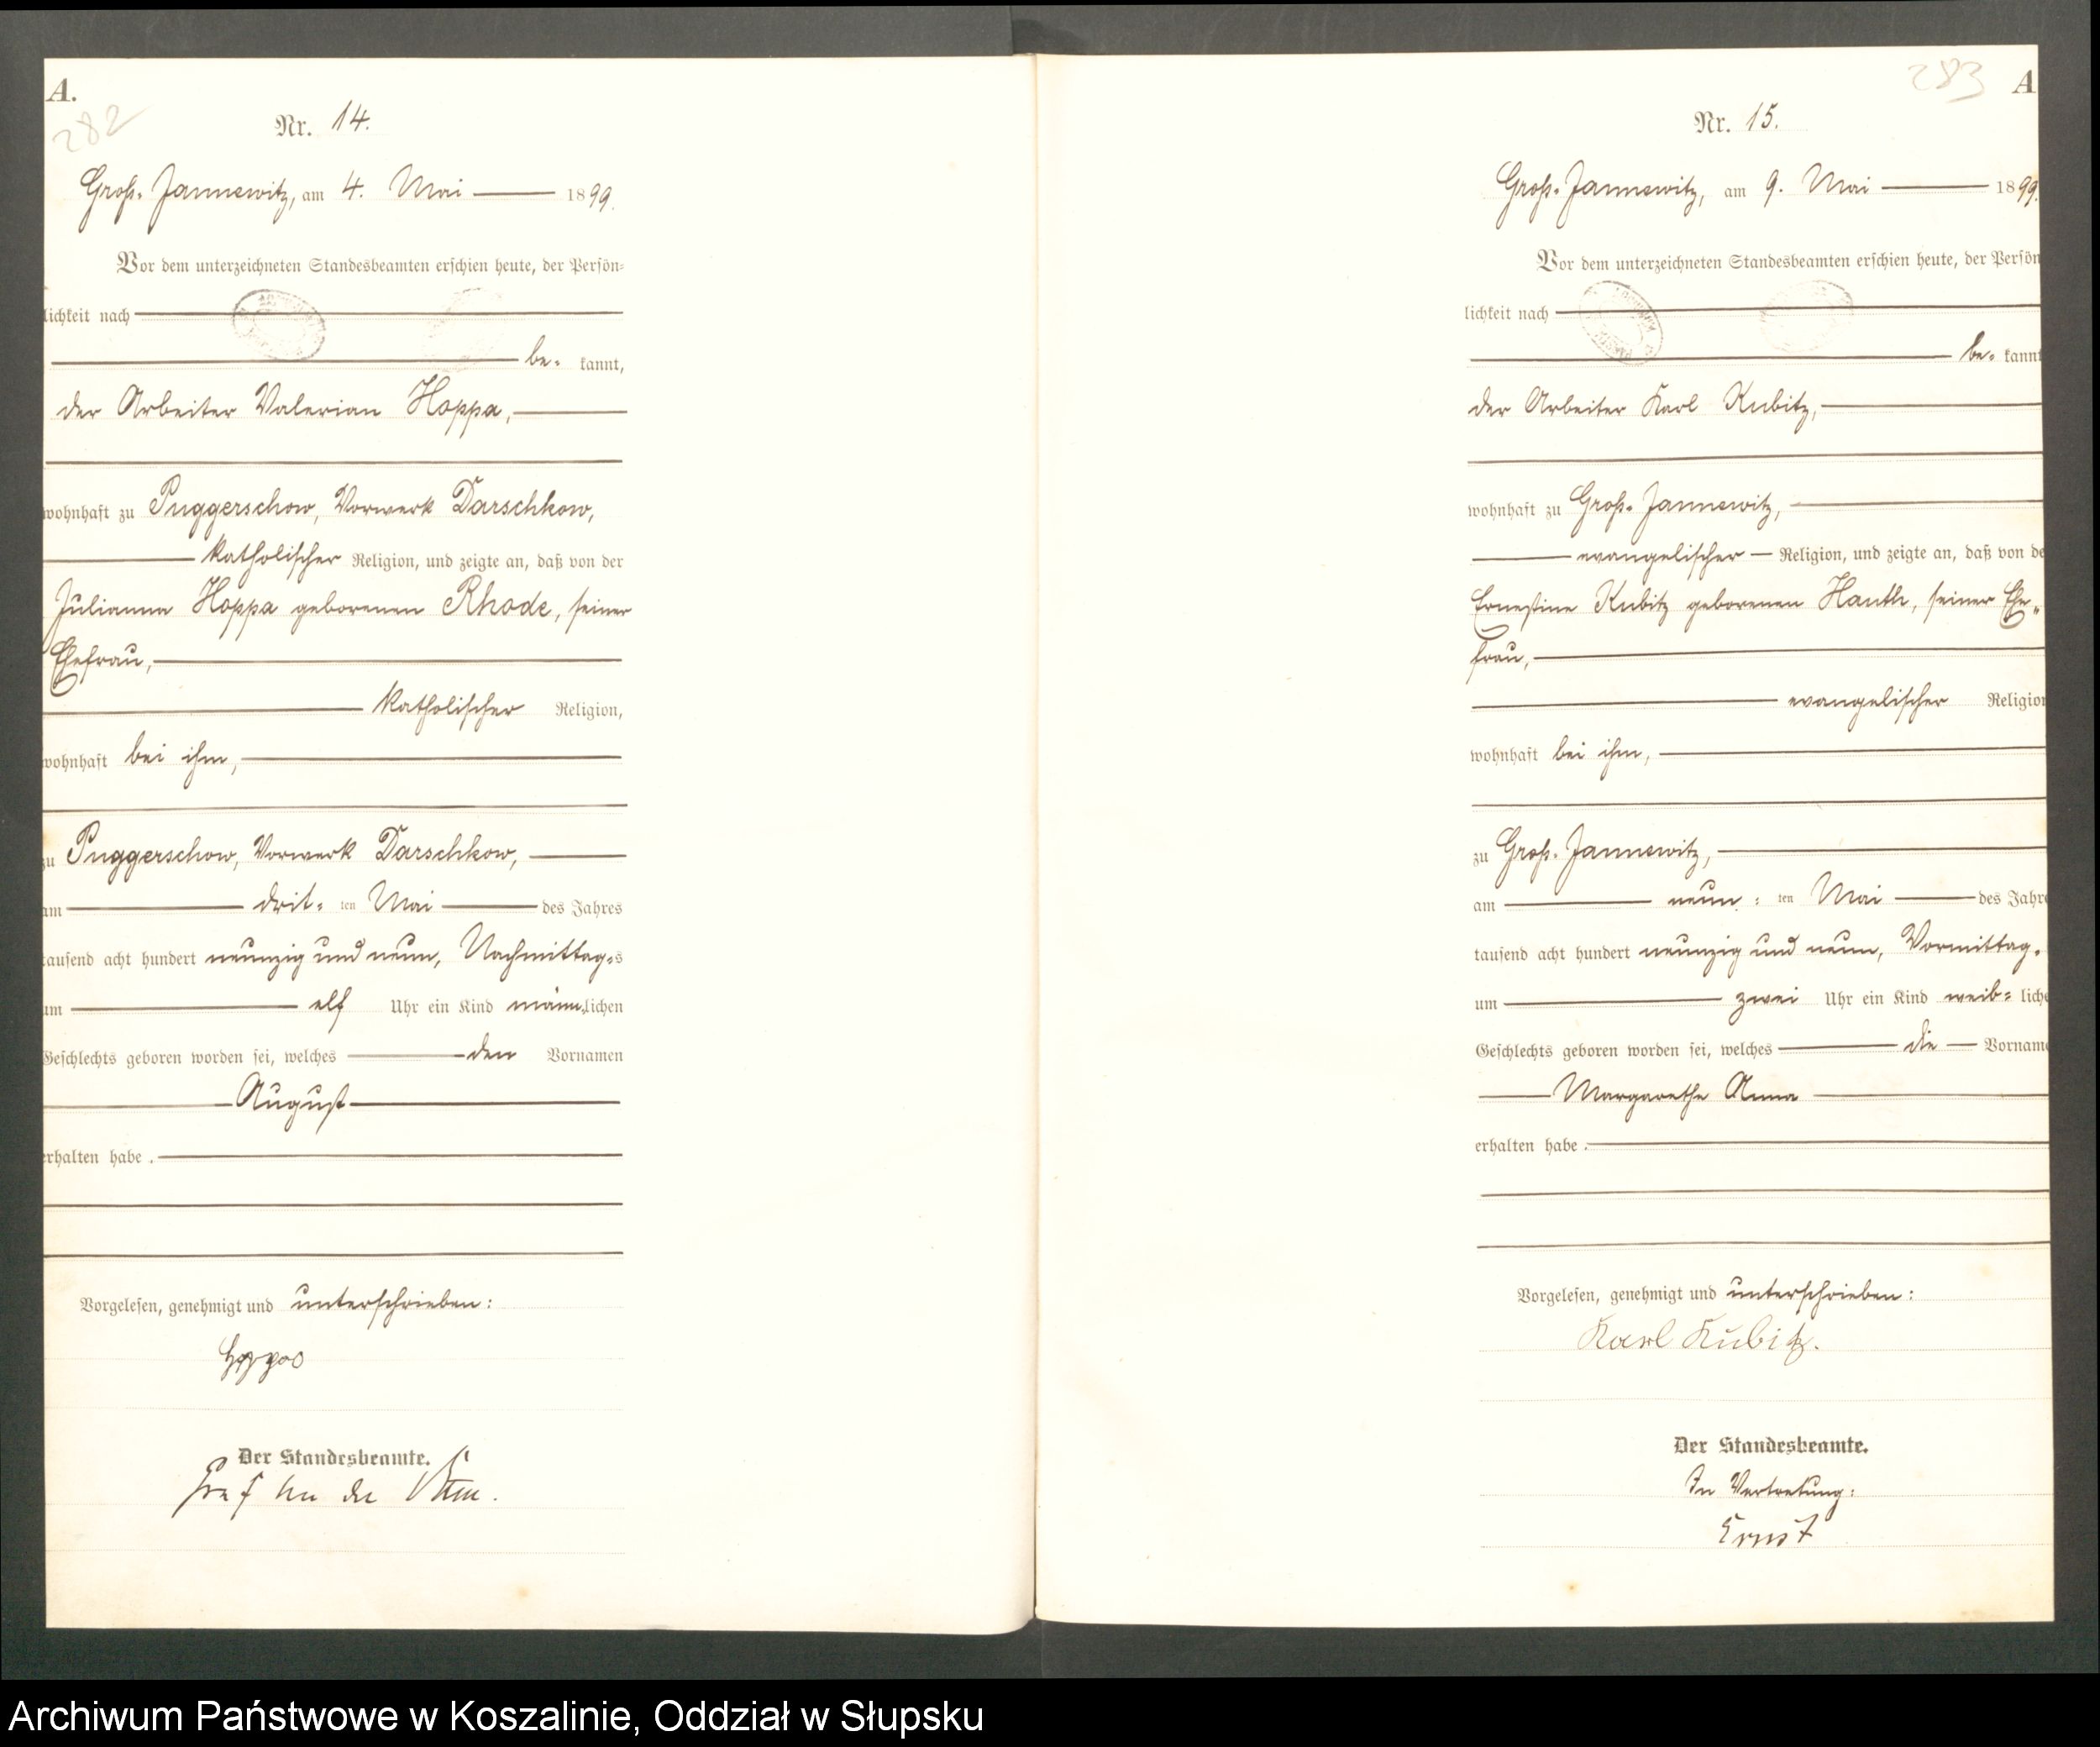 A.
282
Nr. 14.
Groß-Jannewitz, am 4. Mai 1899.
Vor dem unterzeichneten Standesbeamten erschien heute, der Persön=
lichkeit nach
be= kannt,
der Arbeiter Valerian Hoppa,
wohnhaft zu Puggerschow, Vorwerk Darschkow,
katholischer Religion, und zeigte an, daß von der
Julianna Hoppa geborenen Rhode, seiner
Ehefrau,
katholischer Religion,
wohnhaft bei ihm,
zu Puggerschow, Vorwerk Darschkow,
am drit= ten Mai des Jahres
tausend acht hundert neunzig und neun, Nachmittag=s
um elf Uhr ein Kind männ=lichen
Geschlechts geboren worden sei, welches den Vornamen
August
erhalten habe.
Vorgelesen, genehmigt und unterschrieben:
Hoppa
Der Standesbeamte.
Graf von der
283
A
Nr. 15.
Groß-Jannewitz, am 9. Mai 1899.
Vor dem unterzeichneten Standesbeamten erschien heute, der Persön
lichkeit nach
be= kannt
der Arbeiter Karl Kubitz,
wohnhaft zu Groß-Jannewitz,
evangelischer Religion, und zeigte an, daß von de
Ernestine Kubitz geborenen Hauth, seiner Ehe=
frau,
evangelischer Religion
wohnhaft bei ihm,
zu Groß-Jannewitz,
am neun= ten Mai des Jahre
tausend acht hundert neunzig und neun, Vormittag=
um zwei Uhr ein Kind weib= liche
Geschlechts geboren worden sei, welches die Vorname
Margarethe Anna
erhalten habe.
Vorgelesen, genehmigt und unterschrieben:
Karl Kubitz.
Der Standesbeamte.
In Vertretung:
Ernst
Archiwum Państwowe w Koszalinie, Oddział w Słupsku